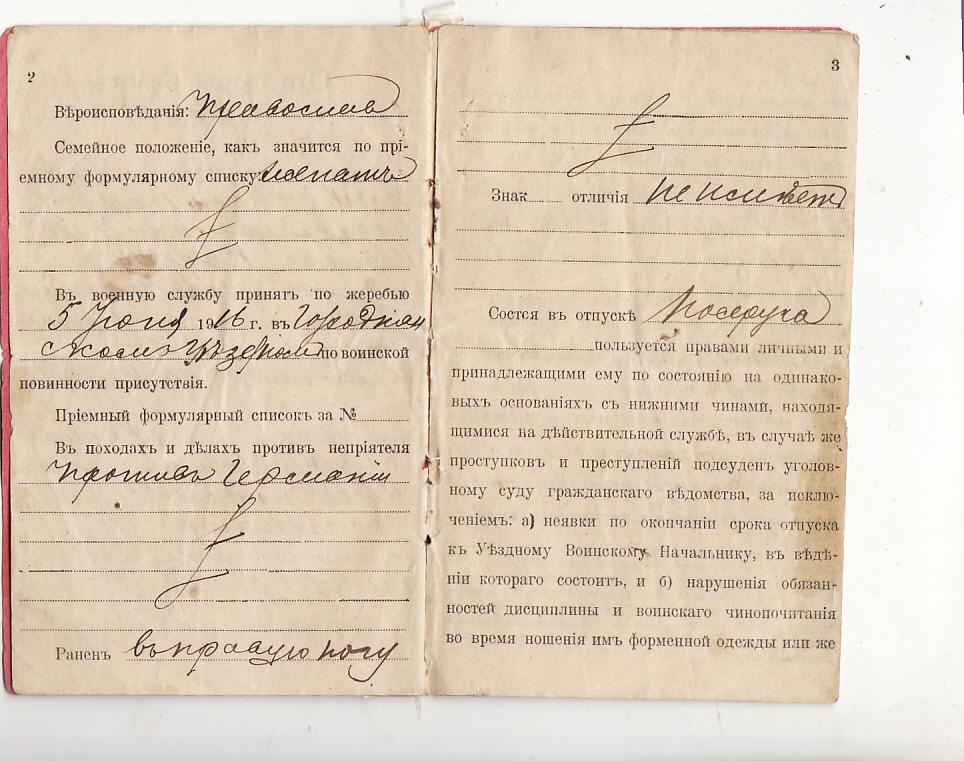 2
Вѣроисповѣданія: Православ
Семейное положеніе, какъ значится по прі-
емному формулярному списку: женатъ
Въ военную службу принятъ по жеребью
5 Іюня 1916 г. въ Городнян
скомъ Уѣздномъ по воинской
повинности присутствія.
Пріемный формулярный списокъ за №
Въ походахъ и дѣлахъ противъ непріятеля
противъ Германіи
Раненъ въ правую ногу
3
Знак отличія не имѣетъ
Состся въ отпускѣ
пользуется правами личными и
принадлежащими ему по состоянію на одинако-
выхъ основаніяхъ съ нижними чинами, находя-
щимися на дѣйствительной службѣ, въ случаѣ же
проступковъ и преступленій подсуденъ уголов-
ному суду гражданскаго вѣдомства, за исклю-
ченіемъ: а) неявки по окончаніи срока отпуска
къ Уѣздному Воинскому Начальнику, въ вѣдѣ-
ніи котораго состоитъ, и б) нарушенія обязан-
ностей дисциплины и воинскаго чинопочитанія
во время ношенія имъ форменной одежды или же